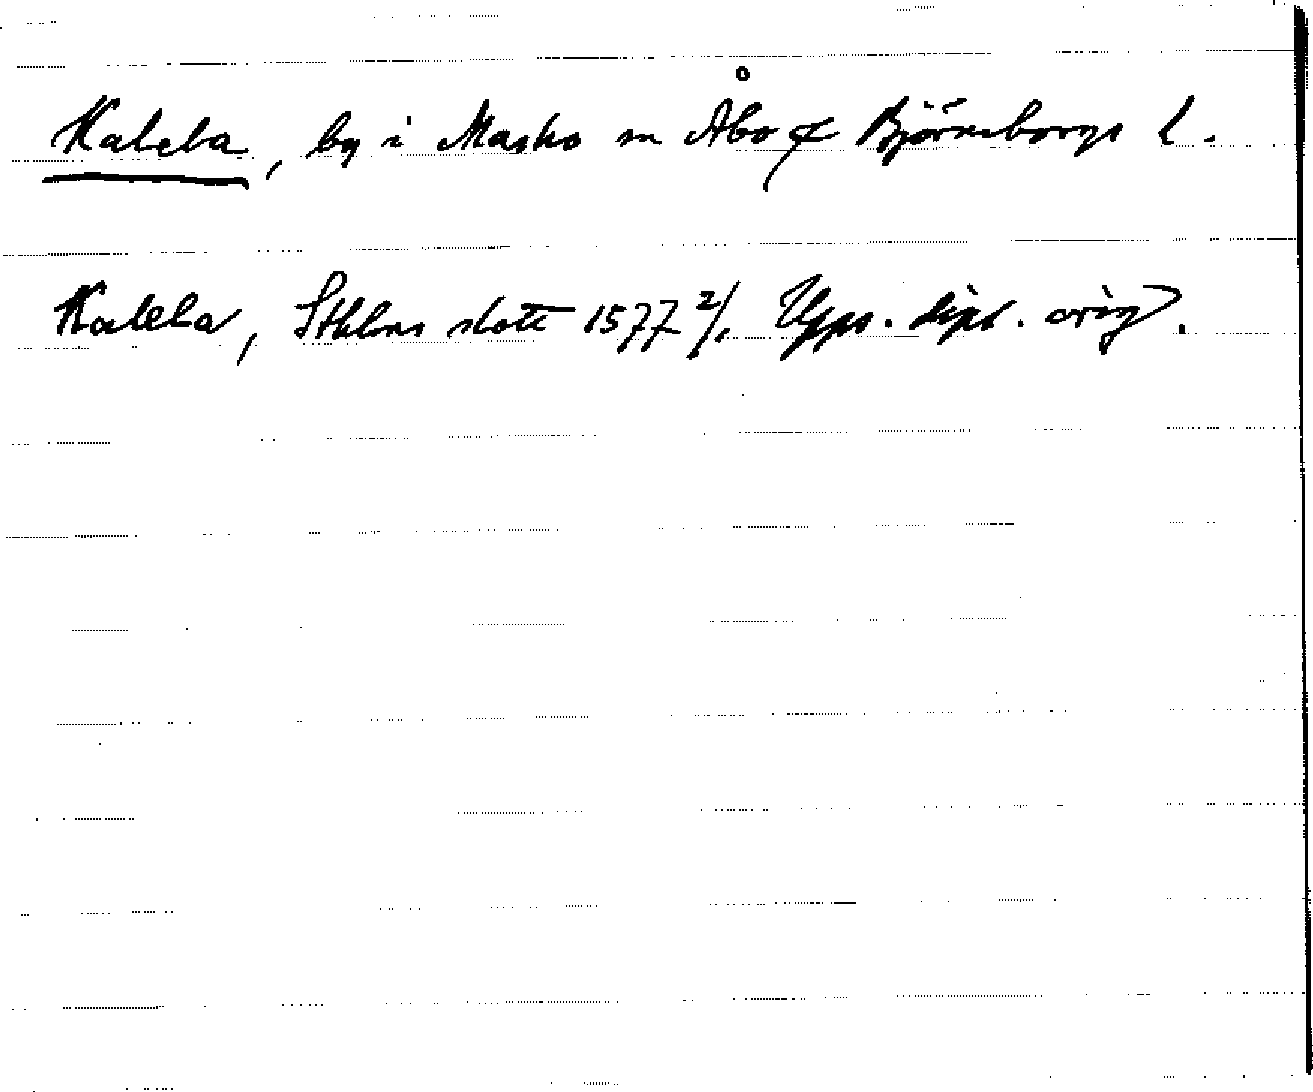 Kalela, by i Masko sn Åbo & Björneborgs l.
Kalela, Sthlms slott 1577 2/1. Upps. dipl. orig.